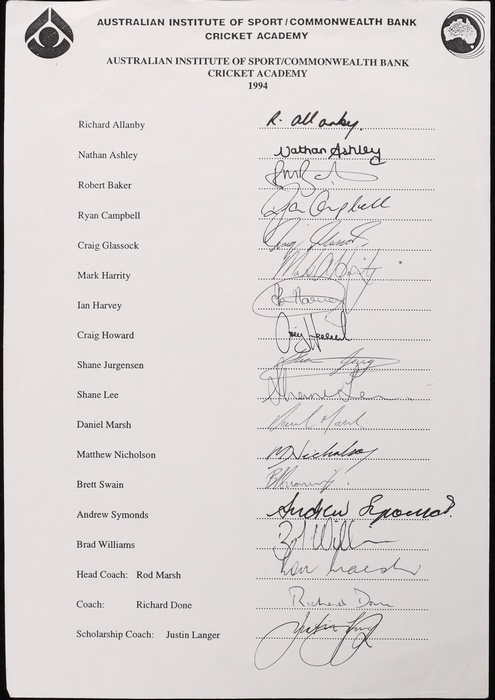 AUSTRALIAN INSTITUTE OF SPORT/COMMONWEALTH BANK
CRICKET ACADEMY
AUSTRALIAN INSTITUTE OF SPORT/COMMONWEALTH BANK
CRICKET ACADEMY
1994
Richard Allanby R. Allanby.
Nathan Ashley Nathan Ashley
Robert Baker
Ryan Campbell Ryan Campbell
Craig Glassock Craig Glassock
Mark Harrity Mark Harrity
Ian Harvey Ian Harvey
Craig Howard Craig Howard
Shane Jurgensen
Shane Lee Shane Lee
Daniel Marsh Daniel Marsh
Matthew Nicholson M Nicholson
Brett Swain
Andrew Symonds Andrew Symonds.
Brad Williams Brad Williams
Head Coach: Rod Marsh
Coach: Richard Done Richard Done
Scholarship Coach: Justin Langer Justin Langer